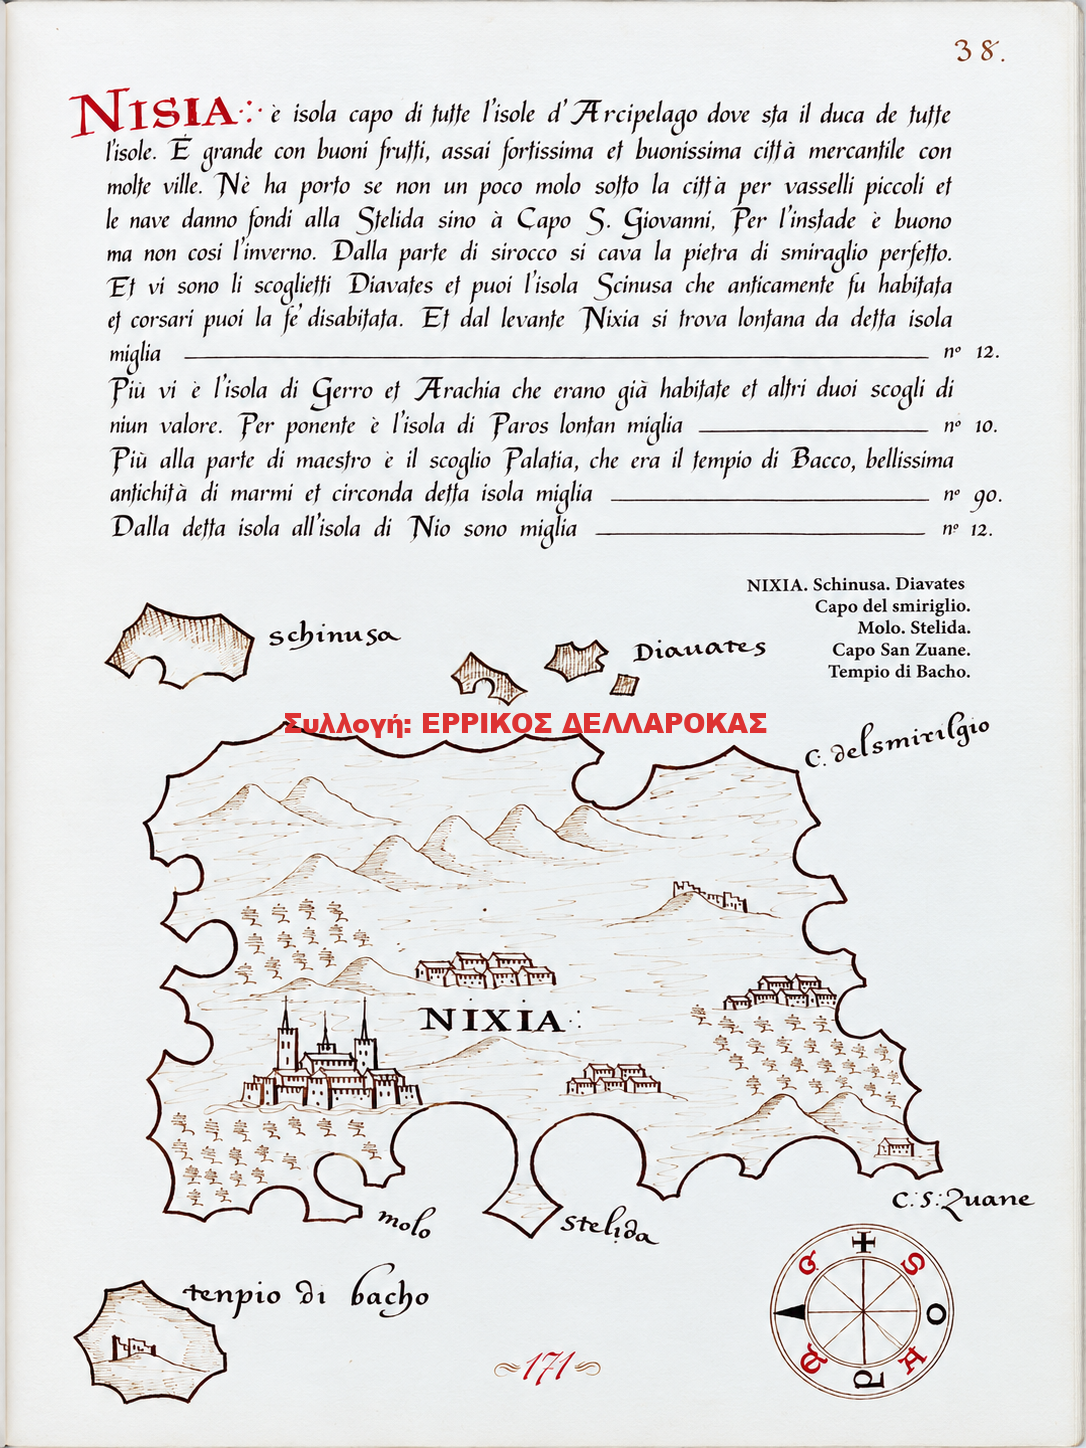 38.
NISIA ∴ è isola capo di tutte l'isole d'Arcipelago dove sta il duca de tutte
l'isole. É grande con buoni frutti, assai fortissima et buonissima città mercantile con
molte ville. Nè ha porto se non un poco molo sotto la città per vasselli piccoli et
le nave danno fondi alla Stelida sino à Capo S. Giovanni, Per l'instade è buono
ma non cosi l'inverno. Dalla parte di sirocco si cava la pietra di smiraglio perfetto.
Et vi sono li scoglietti Diavates et puoi l'isola Scinusa che anticamente fu habitata
et corsari puoi la fe' disabitata. Et dal levante Nixia si trova lontana da detta isola
miglia nº 12.
Più vi è l'isola di Gerro et Arachia che erano già habitate et altri duoi scogli di
niun valore. Per ponente è l'isola di Paros lontan miglia nº 10.
Più alla parte di maestro è il scoglio Palatia, che era il tempio di Bacco, bellissima
antichità di marmi et circonda detta isola miglia nº 90.
Dalla detta isola all'isola di Nio sono miglia nº 12.
NIXIA. Schinusa. Diavates
Capo del smiriglio.
Molo. Stelida.
Capo San Zuane.
Tempio di Bacho.
schinusa
Diauates
Συλλογή: ΕΡΡΙΚΟΣ ΔΕΛΛΑΡΟΚΑΣ
C: delsmirilgio
NIXIA ∴
C: S: Zuane
molo
stelida
tenpio di bacho
G S O A P T
171